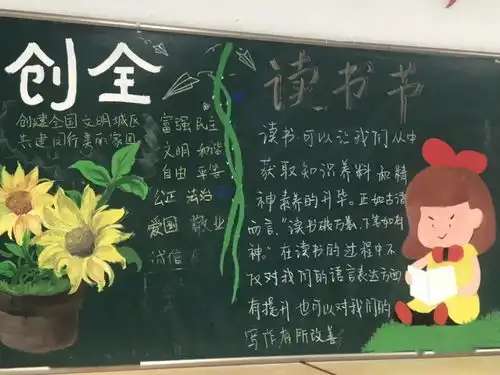 创全
创建全国文明城区
共建同行美丽家园
富强 民主
文明 和谐
自由 平等
公正 法治
爱国 敬业
诚信
读书节
读书可以让我们从中
获取知识养料和精
神素养的升华。正如古语
而言，“读书破万卷，下笔如有
神。”在读书的过程中不
仅对我们的语言表达方面
有提升也可以对我们的
写作有所改善